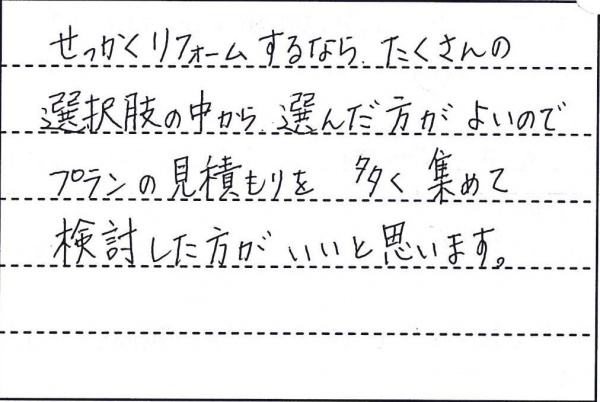 せっかくリフォームするなら、たくさんの
選択肢の中から、選んだ方がよいので
プランの見積もりを 多く集めて
検討した方がいいと思います。